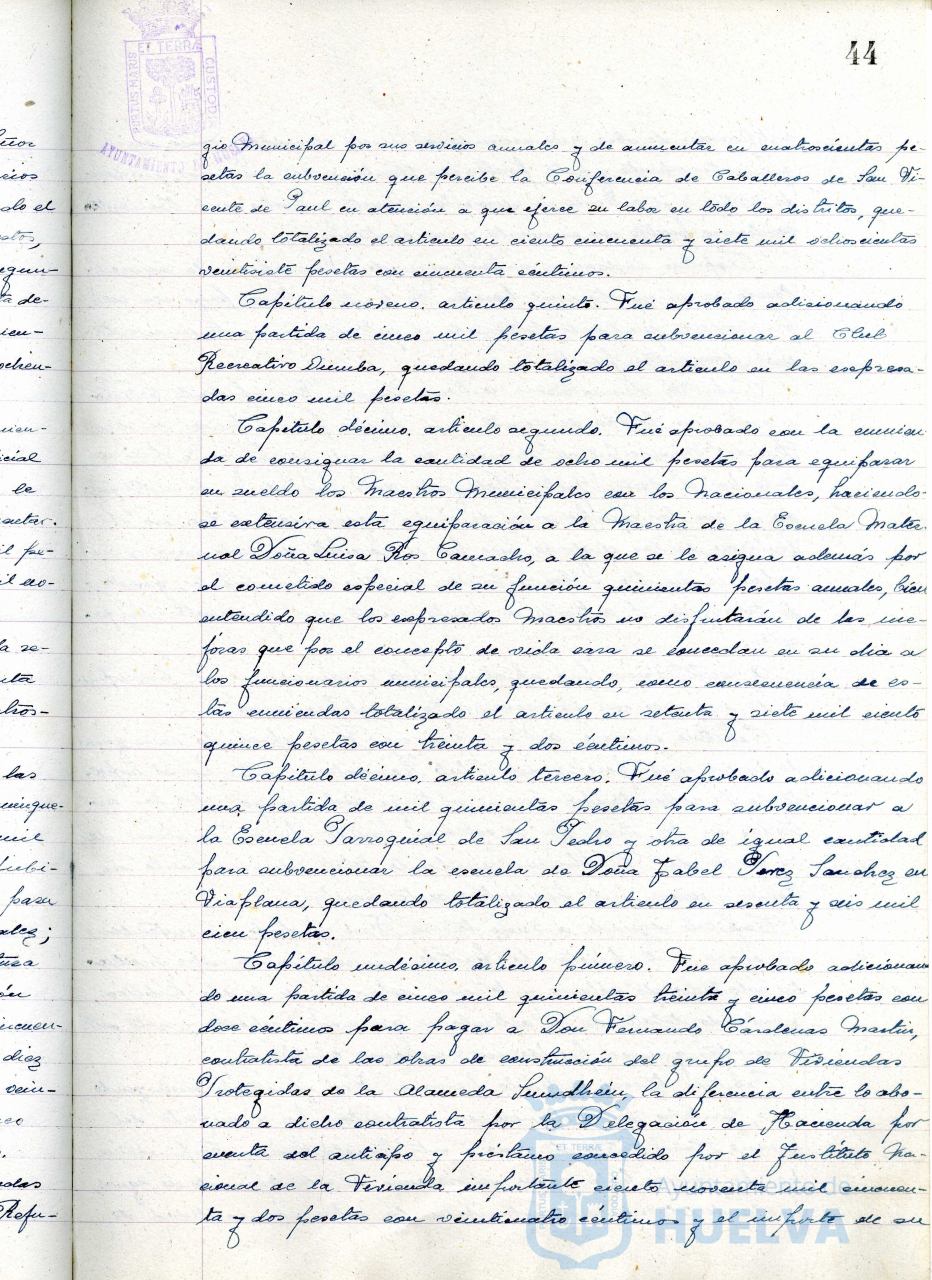 44
PORTUS MARIS ET TERRÆ CUSTODIA
AYUNTAMIENTO
gio Municipal por sus servicios anuales y de aumentar en cuatrocientas pe-
setas la subvención que percibe la Conferencia de Caballeros de San Vi-
cente de Paul en atención a que ejerce su labor en todo los distritos, que-
dando totalizado el articulo en ciento cincuenta y siete mil ochocientas
veintisiete pesetas con cincuenta céntimos.
Capitulo noveno, articulo quinto. Fué aprobado adicionando
una partida de cinco mil pesetas para subvencionar al Club
Recreativo Onuba, quedando totalizado el articulo en las expresa-
das cinco mil pesetas.
Capitulo décimo, articulo segundo. Fué aprobado con la enmien
da de consignar la cantidad de ocho mil pesetas para equiparar
en sueldo los Maestros Municipales con los Nacionales, haciendo-
se extensiva esta equiparación a la Maestra de la Escuela Mater
nal Doña Luisa Ros Camacho, a la que se le asigna además por
el cometido especial de su función quinientas pesetas anuales, bien
entendido que los expresados Maestros no disfrutarán de las me-
joras que por el concepto de vida cara se concedan en su dia a
los funcionarios municipales, quedando, como consecuencia de es-
tas enmiendas totalizado el articulo en setenta y siete mil ciento
quince pesetas con treinta y dos céntimos.
Capitulo décimo, articulo tercero. Fué aprobado adicionando
una partida de mil quinientas pesetas para subvencionar a
la Escuela Parroquial de San Pedro y otra de igual cantidad
para subvencionar la escuela de Doña Isabel Perez Sanchez en
Viaplana, quedando totalizado el articulo en sesenta y seis mil
cien pesetas.
Capitulo undécimo, articulo primero. Fue aprobado adicionan
do una partida de cinco mil quinientas treinta y cinco pesetas con
doce céntimos para pagar a Don Fernando Cárdenas Martin,
contratista de las obras de construcción del grupo de Viviendas
Protegidas de la Alameda Sundheim, la diferencia entre lo abo-
nado a dicho contratista por la Delegación de Hacienda por
cuenta del anticipo y préstamo concedido por el Instituto Na-
cional de la Vivienda importante ciento noventa mil cincuen-
ta y dos pesetas con veinticuatro céntimos y el importe de su
Ayuntamiento de
HUELVA